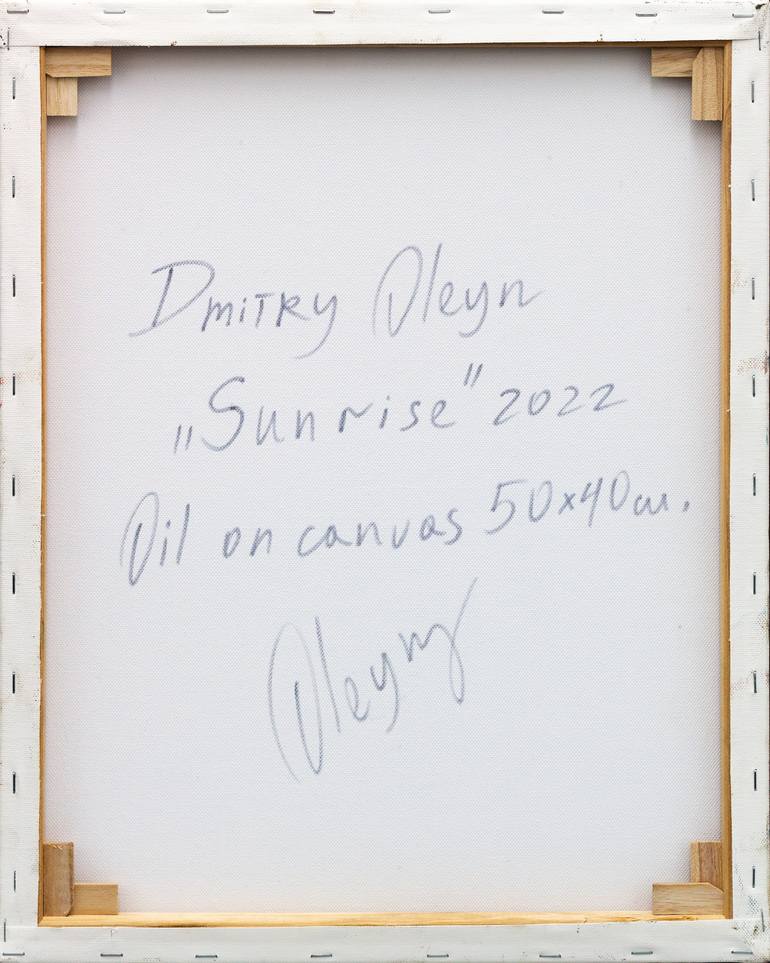 Dmitry Oleyn
„Sunrise" 2022
Oil on canvas 50x40cm.
Oleyn